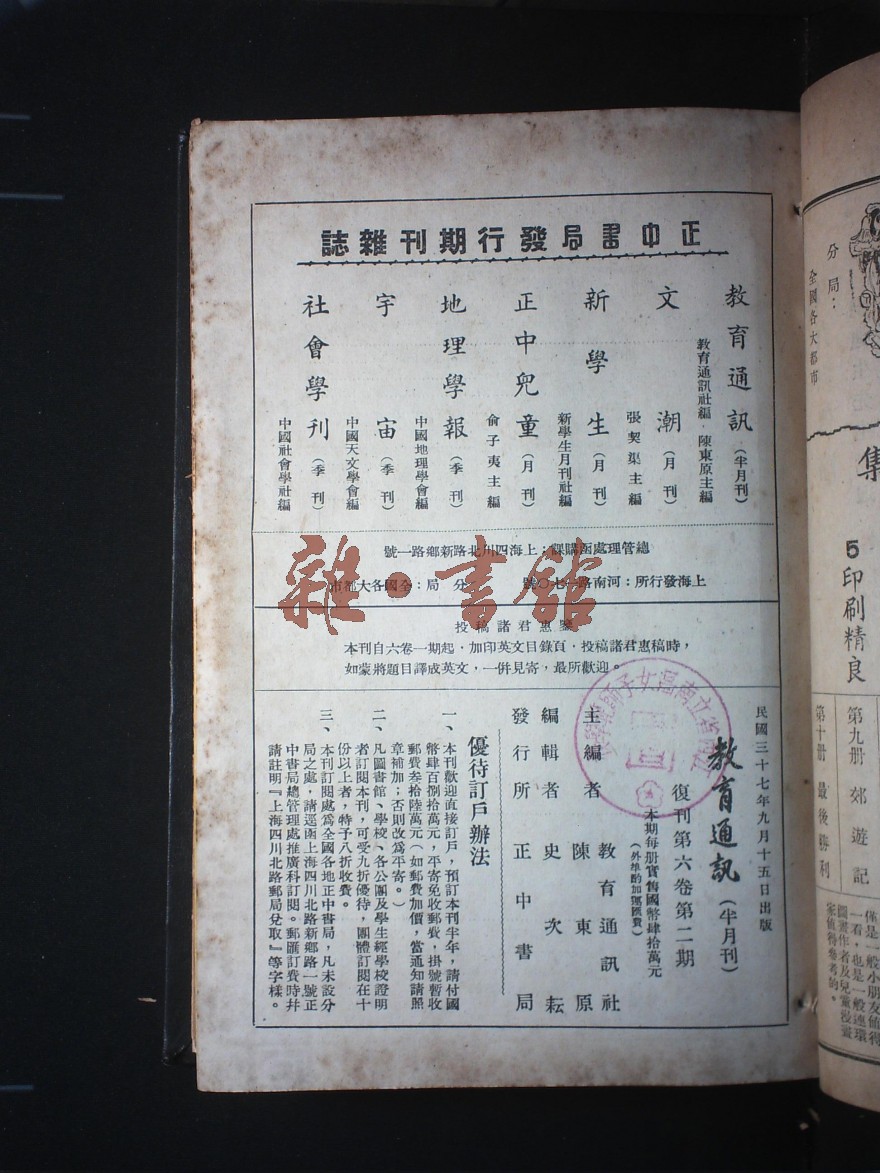 正中書局發行期刊雜誌
教育通訊（半月刊）
教育通訊社編·陳東原主編
文潮（月刊）
張契渠主編
新學生（月刊）
新學生月刊社編
正中兒童（月刊）
俞子夷主編
地理學報（季刊）
中國地理學會編
宇宙（季刊）
中國天文學會編
社會學刊（季刊）
中國社會學社編
總管理處函購課：上海四川北路新鄉路一號
上海發行所：河南路一七〇號 分局：全國各大都市
投稿諸君惠鑒
本刊自六卷一期起，加印英文目錄頁，投稿諸君惠稿時，
如蒙將題目譯成英文，一併見寄，最所歡迎。
民國三十七年九月十五日出版
教育通訊（半月刊）
復刊第六卷第二期
本期每册實售國幣肆拾萬元
（外埠酌加運匯費）
主編者 教育通訊社
陳東原
編輯者 史次耘
發行所 正中書局
優待訂戶辦法
一、本刊歡迎直接訂戶，預訂本刊半年，請付國
幣肆百捌拾萬元，平寄免收郵費，掛號暫收
郵費叁拾陸萬元（如郵費加價，當通知請照
章補加；否則改為平寄。）
二、凡圖書館、學校、各公團及學生經學校證明
者訂閱本刊，可受九折優待，團體訂閱在十
份以上者，特予八折收費。
三、本刊訂閱處為全國各地正中書局，凡未設分
局之處，請逕函上海四川北路新鄉路一號正
中書局總管理處推廣科訂閱。郵匯訂費時并
請註明『上海四川北路郵局兌取』等字樣。
雜·書館
分局：
全國各大都市
集
5印刷精良
第九册 郊遊記
第十册 最後勝利
僅是一般小朋友值得
一看，也是一般連環
圖畫作者及兒童漫畫
家值得參考的。